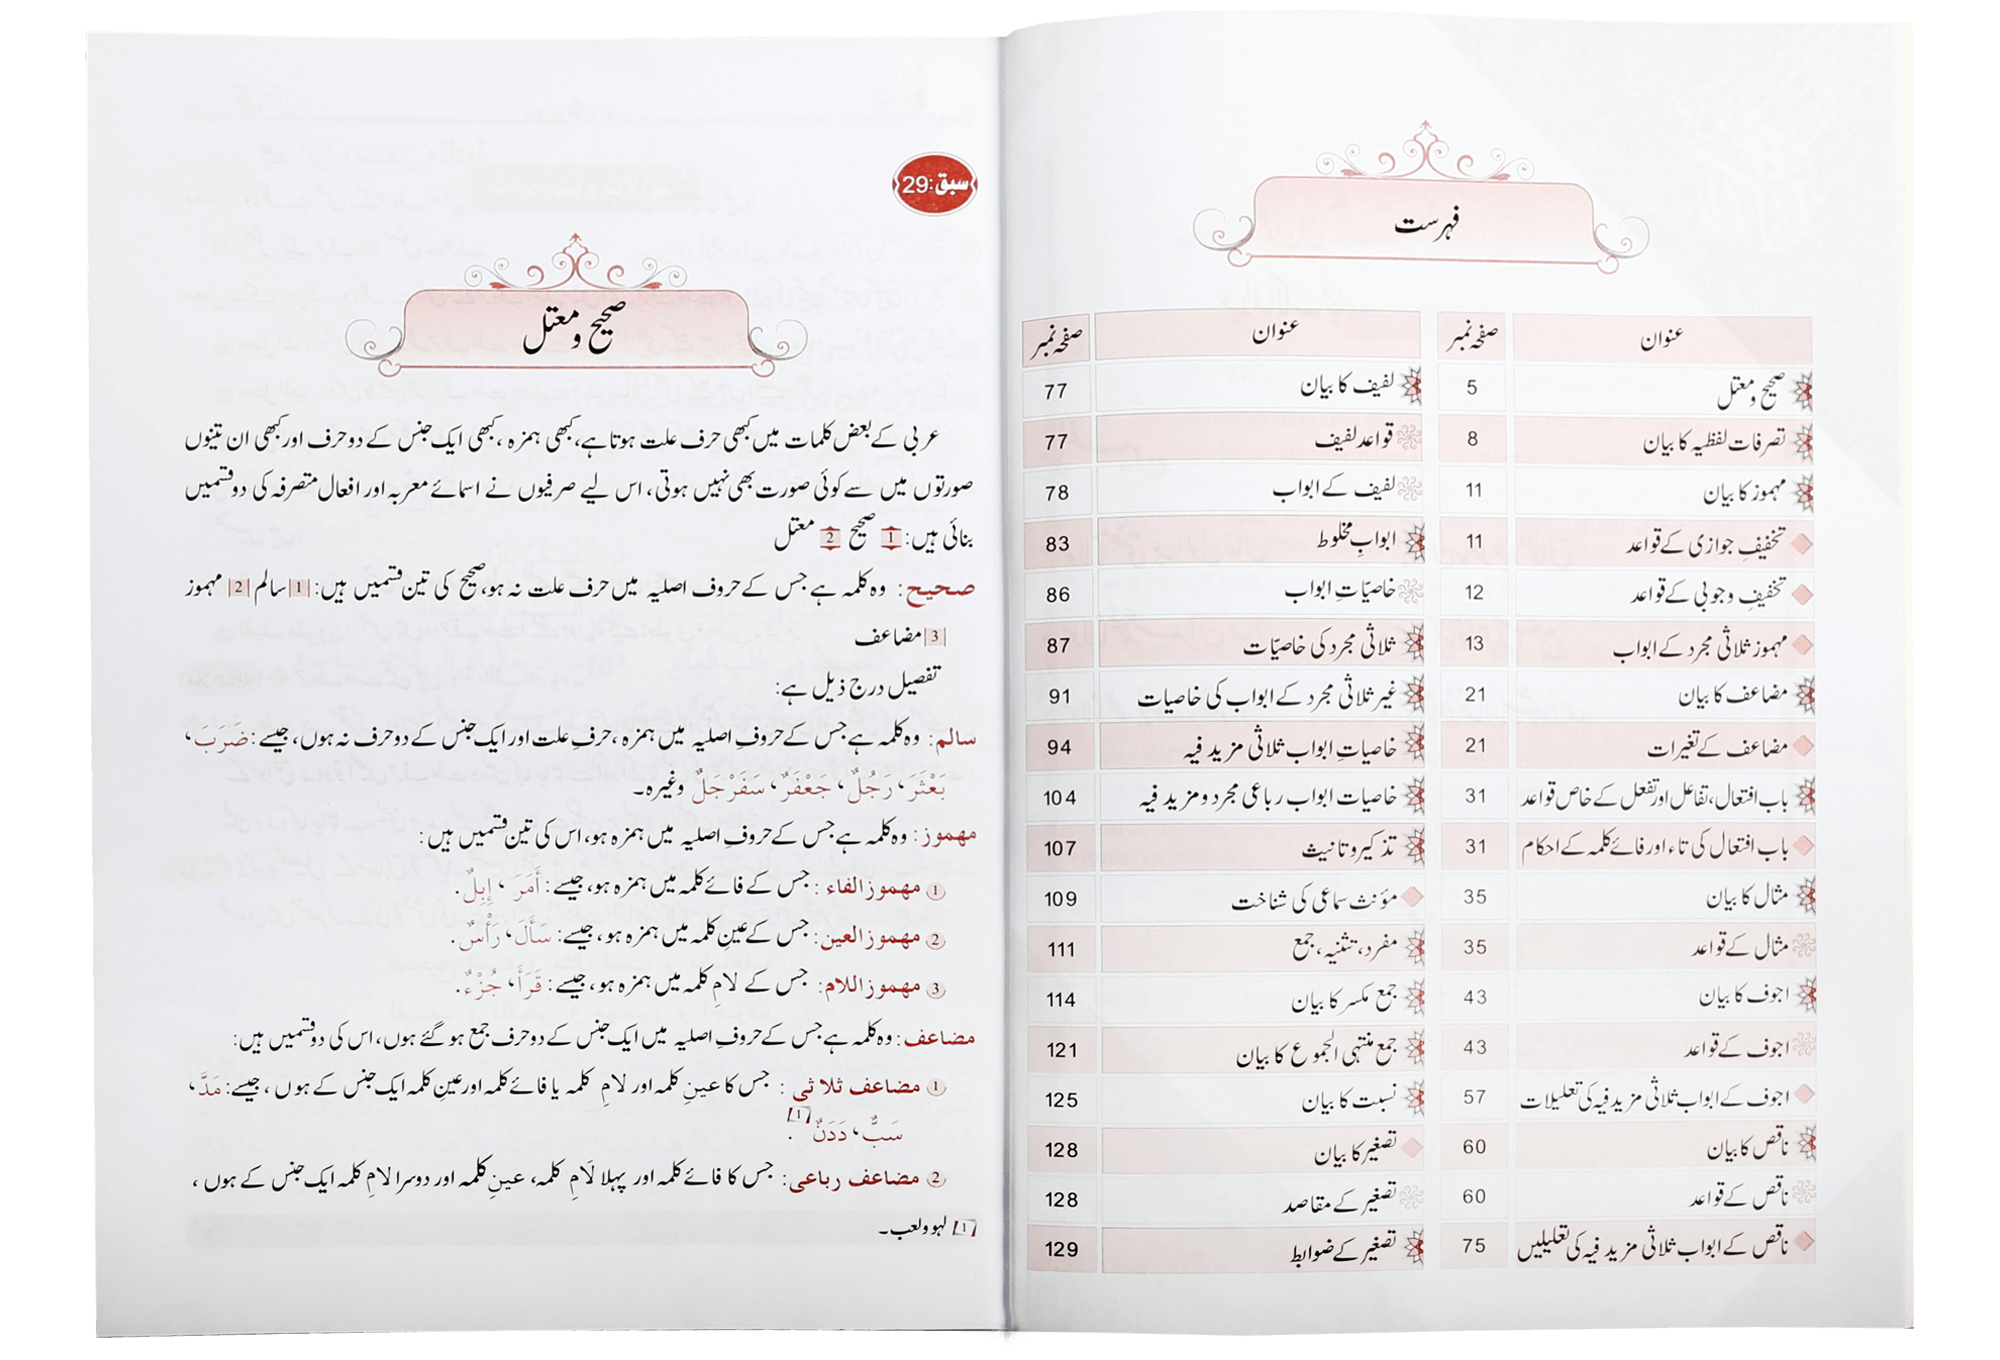 فہرست
عنوان صفحہ نمبر عنوان صفحہ نمبر
صحیح و معتل 5 لفیف کا بیان 77
تصرفات لفظیہ کا بیان 8 قواعد لفیف 77
مہموز کا بیان 11 لفیف کے ابواب 78
تخفیفِ جوازی کے قواعد 11 ابوابِ مخلوط 83
تخفیف وجوبی کے قواعد 12 خاصیّاتِ ابواب 86
مہموز ثلاثی مجرد کے ابواب 13 ثلاثی مجرد کی خاصیّات 87
مضاعف کا بیان 21 غیر ثلاثی مجرد کے ابواب کی خاصیات 91
مضاعف کے تغیرات 21 خاصیاتِ ابواب ثلاثی مزید فیہ 94
باب افتعال، تفاعل اور تفعل کے خاص قواعد 31 خاصیات ابواب رباعی مجرد و مزید فیہ 104
باب افتعال کی تاء اور فائے کلمہ کے احکام 31 تذکیر و تانیث 107
مثال کا بیان 35 مؤنث سماعی کی شناخت 109
مثال کے قواعد 35 مفرد، تثنیہ، جمع 111
اجوف کا بیان 43 جمع مکسر کا بیان 114
اجوف کے قواعد 43 جمع منتہی الجموع کا بیان 121
اجوف کے ابواب ثلاثی مزید فیہ کی تعلیلات 57 نسبت کا بیان 125
ناقص کا بیان 60 تصغیر کا بیان 128
ناقص کے قواعد 60 تصغیر کے مقاصد 128
ناقص کے ابواب ثلاثی مزید فیہ کی تعلیلیں 75 تصغیر کے ضوابط 129
سبق: 29
صحیح و معتل
عربی کے بعض کلمات میں کبھی حرف علت ہوتا ہے، کبھی ہمزہ، کبھی ایک جنس کے دو حرف اور کبھی ان تینوں
صورتوں میں سے کوئی صورت بھی نہیں ہوتی، اس لیے صرفیوں نے اسمائے معربہ اور افعال متصرفہ کی دو قسمیں
بنائی ہیں: 1 صحیح 2 معتل
صحیح: وہ کلمہ ہے جس کے حروف اصلیہ میں حرف علت نہ ہو، صحیح کی تین قسمیں ہیں: 1 سالم 2 مہموز
3 مضاعف
تفصیل درج ذیل ہے:
سالم: وہ کلمہ ہے جس کے حروفِ اصلیہ میں ہمزہ، حرفِ علت اور ایک جنس کے دو حرف نہ ہوں، جیسے: ضَرَبَ،
بَعْثَرَ، رَجُلٌ، جَعْفَرٌ، سَفَرْجَلٌ وغیرہ۔
مہموز: وہ کلمہ ہے جس کے حروفِ اصلیہ میں ہمزہ ہو، اس کی تین قسمیں ہیں:
① مہموز الفاء: جس کے فائے کلمہ میں ہمزہ ہو، جیسے: أَمَرَ، إِبِلٌ.
② مہموز العین: جس کے عینِ کلمہ میں ہمزہ ہو، جیسے: سَأَلَ، رَأْسٌ.
③ مہموز اللام: جس کے لامِ کلمہ میں ہمزہ ہو، جیسے: قَرَأَ، جُزْءٌ.
مضاعف: وہ کلمہ ہے جس کے حروفِ اصلیہ میں ایک جنس کے دو حرف جمع ہو گئے ہوں، اس کی دو قسمیں ہیں:
① مضاعف ثلاثی: جس کا عینِ کلمہ اور لامِ کلمہ یا فائے کلمہ اور عینِ کلمہ ایک جنس کے ہوں، جیسے: مَدَّ،
سَبٌّ، دَدَنٌ [1].
② مضاعف رباعی: جس کا فائے کلمہ اور پہلا لَامِ کلمہ، عینِ کلمہ اور دوسرا لامِ کلمہ ایک جنس کے ہوں،
[1] لہو و لعب۔